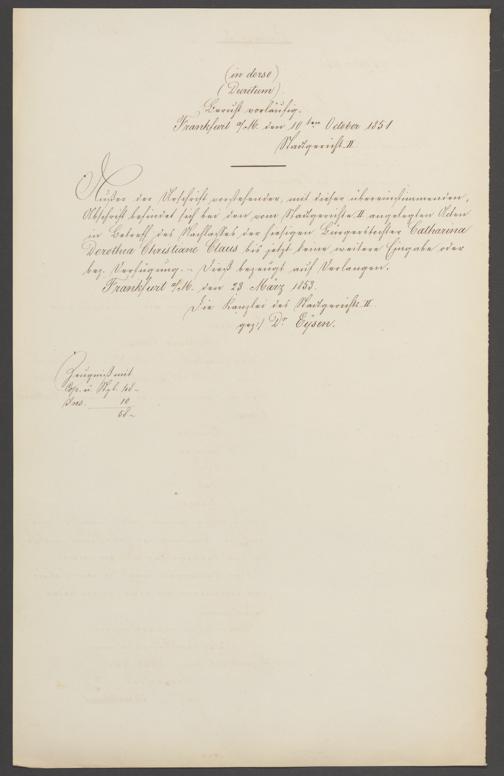 (in dorso)
(Decretum)
Beruht vorläufig.
Frankfurt a/M. den 10ten October 1851
Stadtgericht II
Außer der Urschrift vorstehender, mit dieser übereinstimmenden,
Abschrift befindet sich bei den vom Stadtgerichte II angelegten Acten
in Betreff des Nachlasses der hiesigen Bürgerstochter Catharina
Dorothea Christiane Claus bis jetzt keine weitere Eingabe oder
bez. Verfügung. – Dieß bezeugt auf Verlangen.
Frankfurt a/M. den 23 März 1853.
Die Kanzlei des Stadtgerichts II.
gez:/ Dr Eysen.
Zeugniß mit
Cop. u. Stpl.
10